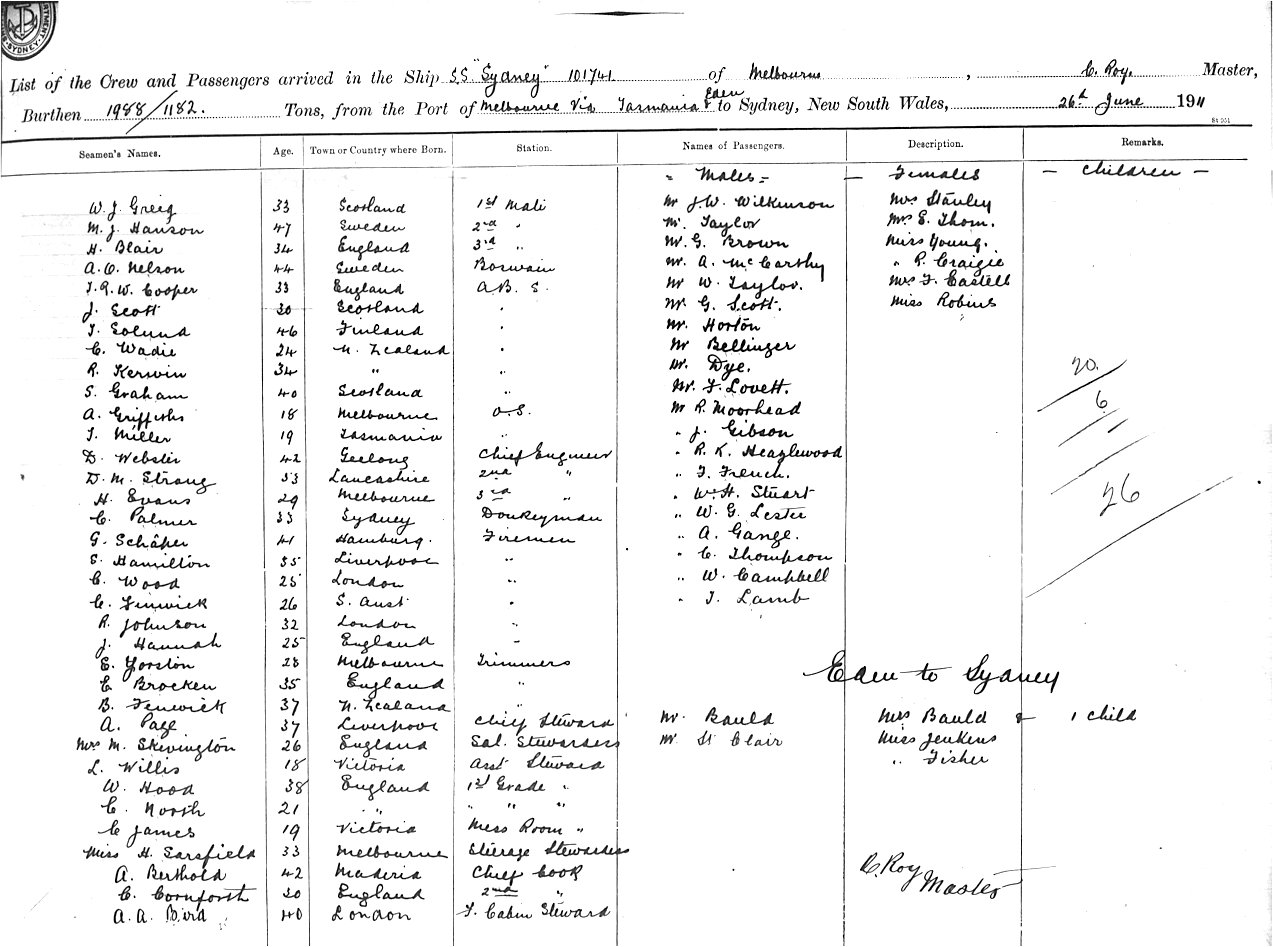 SYDNEY
List of the Crew and Passengers arrived in the Ship S.S "Sydney" 101741 of Melbourne, C. Roy. Master,
Burthen 1988/1182. Tons, from the Port of Melbourne Via Tasmania & Eden to Sydney, New South Wales, 26th June 1911
Seamen's Names. Age. Town or Country where Born. Station. Names of Passengers. Description. Remarks.
- Males - - Females - Children -
W. J. Greig 33 Scotland 1st Mate Mr J. W. Wilkinson Mrs Stanley
M. J. Hanson 47 Sweden 2nd " Mr. Taylor Mrs E. Thom.
H. Blair 34 England 3rd " Mr. G. Brown Miss Young.
A. O. Nelson 44 Sweden Boswain Mr. A. McCarthy " R. Craigie
T. R. W. Cooper 33 England A.B. S. Mr W. Taylor. Mrs F. Castell
J. Scott 30 Scotland " Mr. G. Scott. Miss Robins
T. Solund 46 Finland " Mr. Horton
C. Wadie 24 N. Zealand " Mr Bellinger
R. Kerwin 34 " " Mr. Dye. 20.
S. Graham 40 Scotland " Mr. F. Lovett.
A. Griffiths 18 Melbourne O.S. Mr R. Moorhead 6
T. Miller 19 Tasmania " " J. Gibson
D. Webster 42 Geelong Chief Engineer " R. K. Heazlewood
D. M. Strang 53 Lancashire 2nd " " F. French.
H. Evans 29 Melbourne 3rd " " Wm H. Stuart 26
C. Palmer 33 Sydney Donkeyman " W. G. Lester
G. Schäper 41 Hamburg. Firemen " A. Gange.
S. Hamilton 35 Liverpool " " C. Thompson
C. Wood 25 London " " W. Campbell
C. Finwick 26 S. Aust " " T. Lamb
R. Johnson 32 London "
J. Hannah 25 England "
E. Yorston 28 Melbourne Trimmers Eden to Sydney
C Brocken 35 England "
B. Fenwick 37 N. Zealand "
A. Page 37 Liverpool Chief Steward Mr. Bauld Mrs Bauld & 1 child
Mrs M. Skevington 26 England Sal. Stewardess Mr St Clair Miss Jenkens
L. Willis 18 Victoria Asst Steward " Fisher
W. Hood 38 England 1st Grade "
C. North 21 " " " "
C James 19 Victoria Mess Room "
Miss H. Sarsfield 33 Melbourne Steerage Stewardess
A. Berthold 42 Maderia Chief Cook C. Roy
C. Cornforth 30 England 2nd " Master
A. A. Bird 40 London F. Cabin Steward